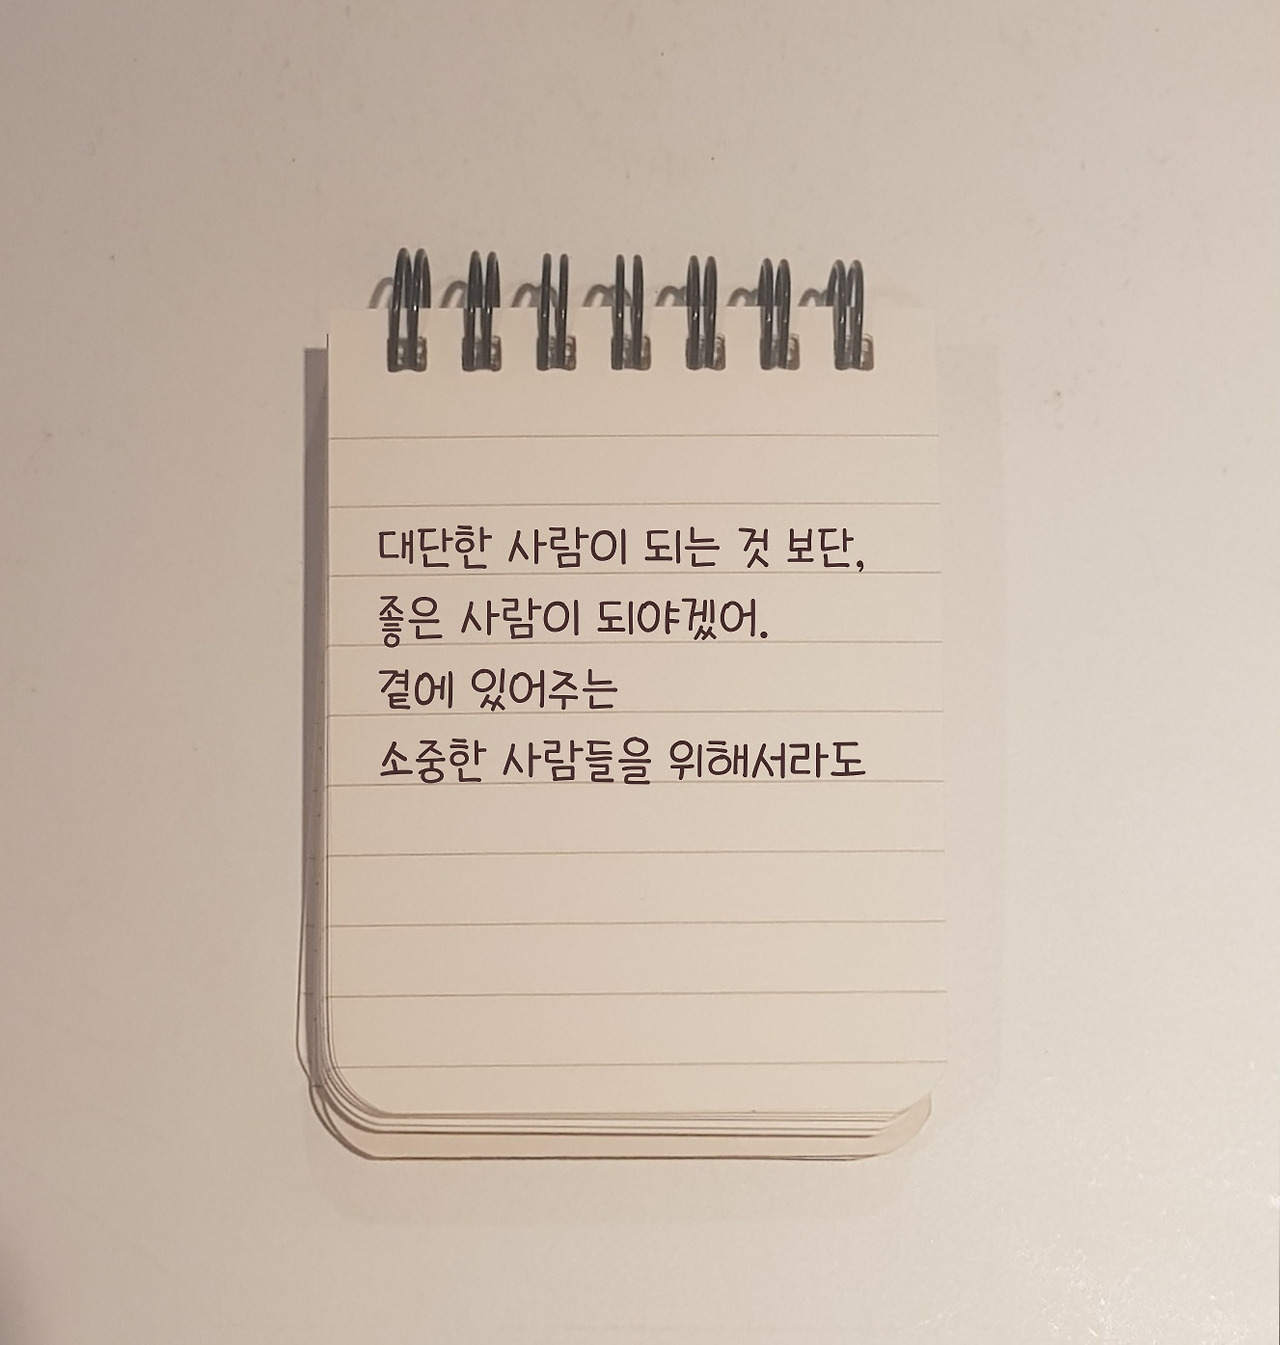 대단한 사람이 되는 것 보단,
좋은 사람이 되야겠어.
곁에 있어주는
소중한 사람들을 위해서라도